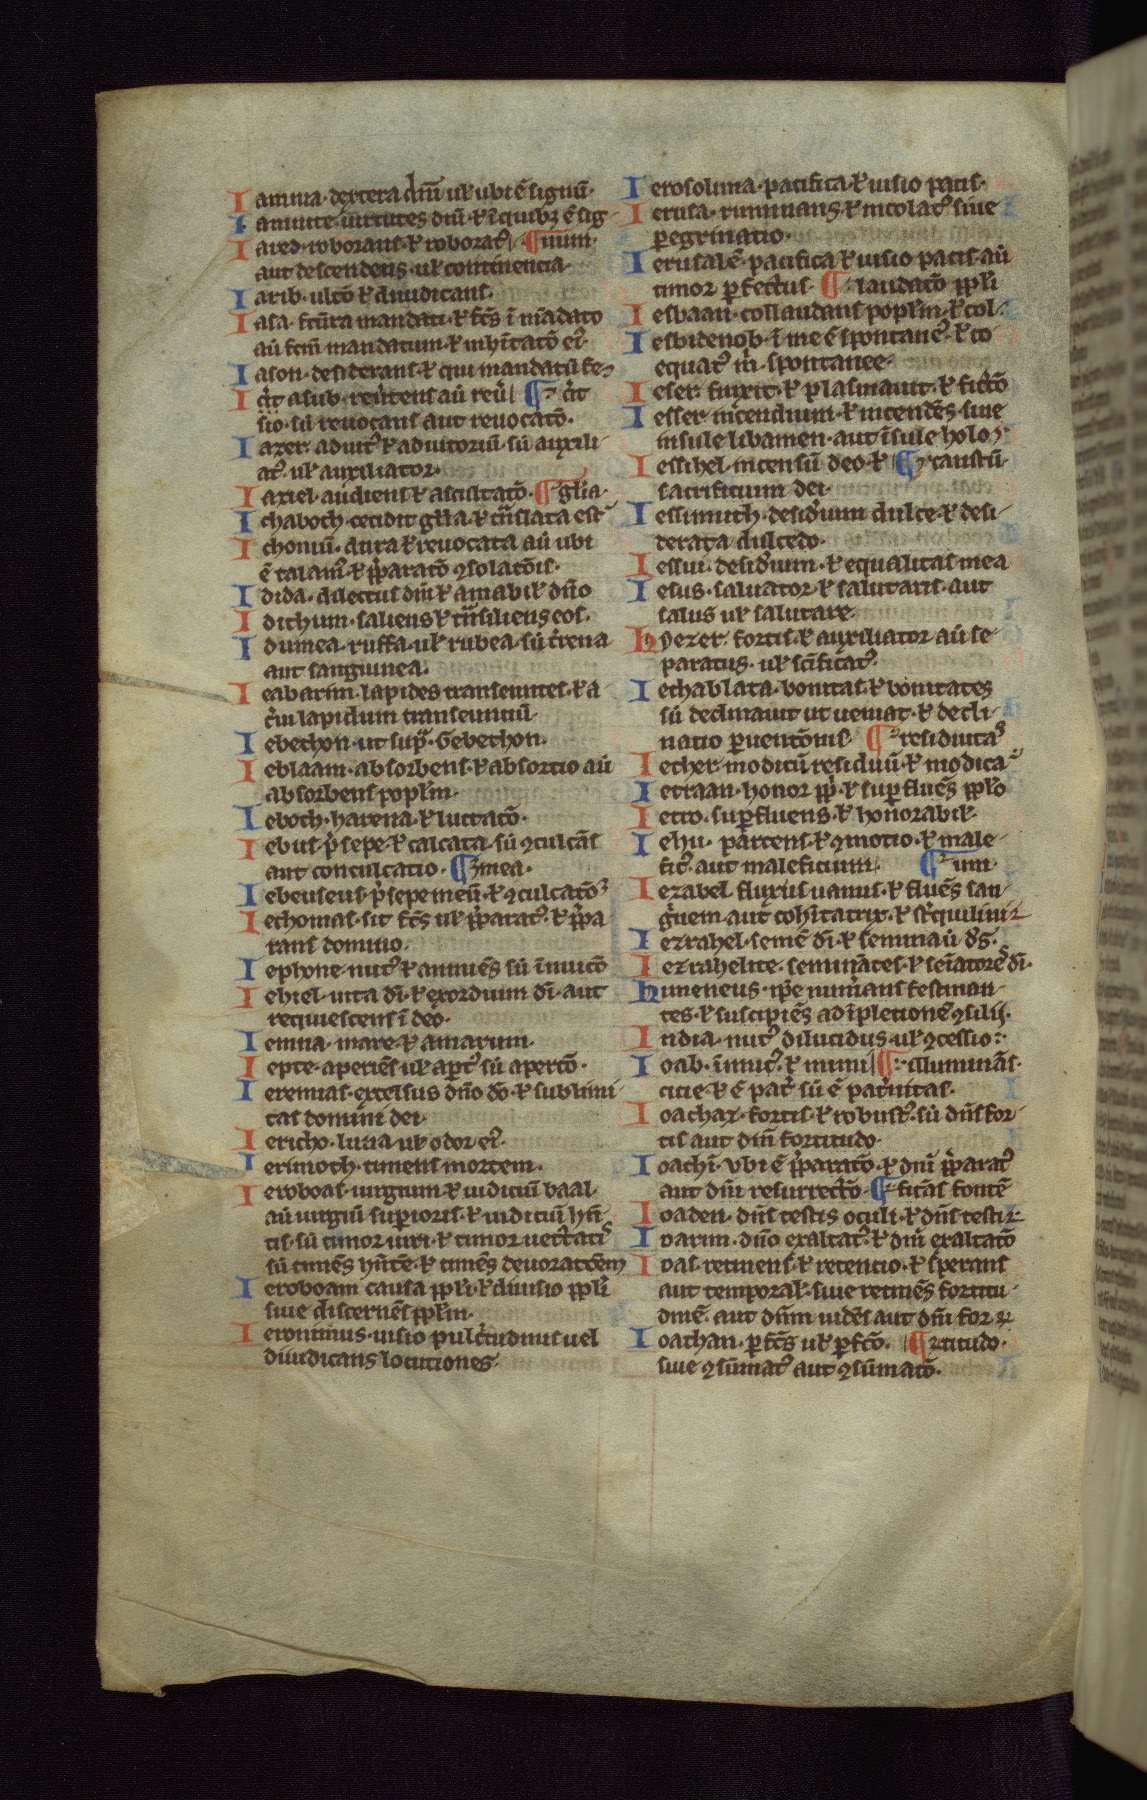 Iamma. dextera dn̄i ul̄ ubi ē signū.
Iamnite. uirtutes dn̄i ⁊ ī quibꝫ ē sig
Iared. roborans ⁊ roborat᷒ ¶ num.
aut descendens. ul̄ continencia.
Iarib. ultō ⁊ diiudicans.
Iasa. fc̄ura mandati. ⁊ fc̄s ī mādato
aū fc̄m mandatum. ⁊ inhītatō ei᷒.
Iason. desiderans. ⁊ qui mandatū fe
I asub. reu̾tens aū reu̾ ¶ c̾it
sio. sū reuocans aut reuocatō.
Iazer. adiuit᷒ ⁊ adiutoriū sū auxili
at᷒ ul̄ auxiliator.
Iaziel. audiens ⁊ ascultatō. ¶ gl̄ia.
Ichaboth. cecidit gl̄ia. ⁊ tn̄slata est
Ichoniū. dura ⁊ reuocata aū ubi
ē talam᷒. ⁊ p̄paratō ꝯsolatōis.
Idida. dilectus dn̄i ⁊ amabil̄ dn̄o
Idithum. saliens ⁊ tn̄siliens eos.
Idumea. ruffa. ul̄ rubea. sū t̾rena
aut sanguinea.
Ieabarim. lapides transeuntes. ⁊ a
c̾ui lapidum transeuntiū.
Iebethon. ut sup̄. Gebethon.
Ieblaam. absorbens. ⁊ absortio aū
absorbens popl̄m.
Ieboth. harena. ⁊ luctatō.
Iebus. p̄sepe. ⁊ calcata. sū ꝯculcās
aut conculcatio. ¶ mea.
Iebeuseus. p̄sepe meū. ⁊ ꝯculcatō
Iechomas. sit fc̄s ul̄ p̄parat᷒. ⁊ p̄pa
rans domino.
Iephone. nut᷒ ⁊ annuēs sū īnuitō
Iehiel. uita dī. ⁊ exordium dī. aut
requiescens ī deo.
Iemna. mare. ⁊ amarum.
Iepte. aperiēs ul̄ apt᷒ sū apertō.
Ieremias. excelsus dn̄o dō. ⁊ sublimi
tas domini dei.
Iericho. luna ul̄ odor ei᷒.
Ierimoth. timens mortem.
Ieroboal. uirginum. ⁊ iudiciū baal.
aū uirginū superioris. ⁊ iudiciū hn̄
tis. sū timor uiri. ⁊ timor uet̾tatis
sū timēs hn̄tē. ⁊ timēs deuoratōem
Ieroboam causa ppl̄i. ⁊ diuisio ppl̄i
siue discernēs ppl̄m.
Ieronimus. uisio pulc̾tudinis uel
diiudicans locutiones.
Ierosolima. pacifica. ⁊ uisio pacis.
Ierusa. ruminans. ⁊ incolat᷒ siue
peregrinatio.
Ierusalē. pacifica. ⁊ uisio pacis. aū
timor perfectus. ¶ laudatō ppl̄i
Iesbaan. collaudans popl̄m. ⁊ col
Iesbidenob. ī me ē spontane᷒. ⁊ co
equat᷒ m̄. spontanee.
Ieser. finxit. ⁊ plasmauit. ⁊ fictō
Iesser. incendium. ⁊ incendēs. siue
insule libamen. aut īsule holo
Iessihel. incensū deo. ⁊ ¶ caustū.
sacrificium dei.
Iessimuth. desid̾ium dulce. ⁊ desi
derata dulcedo.
Iessui. desid̾ium. ⁊ equalitas mea
Iesus. saluator. ⁊ salutaris. aut
salus ul̄ salutare.
Hyezer. fortis. ⁊ auxiliator aū se
paratus. ul̄ sc̄ificat᷒.
Iethablata. bonitas. ⁊ bonitates
sū declinauit ut ueniat. ⁊ decli
natio peruentōnis. ¶ residuita᷒
Iether. modicū residuū. ⁊ modica
Ietraan. honor pp̄. ⁊ superfluēs ppl̄o
Ietro. superfluens. ⁊ honorabil̄.
Iehu. parcens. ⁊ ꝯmotio. ⁊ male
fic᷒. aut maleficium. ¶ um.
Iezabel. fluxus uanus. ⁊ fluēs san
guinem. aut cohītatrix. ⁊ st̾quilini
Iezrahel. semē dī. ⁊ seminaū ds̄.
Iezrahelite. semināt̄es. ⁊ seīatores dī.
Humeneus. ip̄e num̄ans festinan
tes. ⁊ suscipiēs ad īpletionē ꝯsilij.
India. nut᷒ dilucidus. ul̄ ꝯcessio.
Ioab. īimic᷒. ⁊ inimi ¶ illuminās.
citie. ⁊ ē pat̾. sū ē pat̾nitas.
Ioachaz. fortis. ⁊ robust᷒. sū dn̄s for
tis aut dn̄i fortitudo.
Ioachī. ubi ē p̄paratō. ⁊ dn̄i p̄parat᷒
aut dn̄i resurrectō. ¶ ficās fontē
Ioaden. dn̄s testis oculi. ⁊ dn̄s testi
Ioarim. dn̄o exaltat᷒. ⁊ dn̄i exaltatō
Ioas. retinens. ⁊ retencio. ⁊ sperans
aut temporal̄. siue retinēs fortitu
dinē. aut dn̄m uidēs aut dn̄i for
Ioathan. perfc̄s ul̄ perfcō. ¶ titudo.
siue ꝯsūmat᷒ aut ꝯsūmatō.